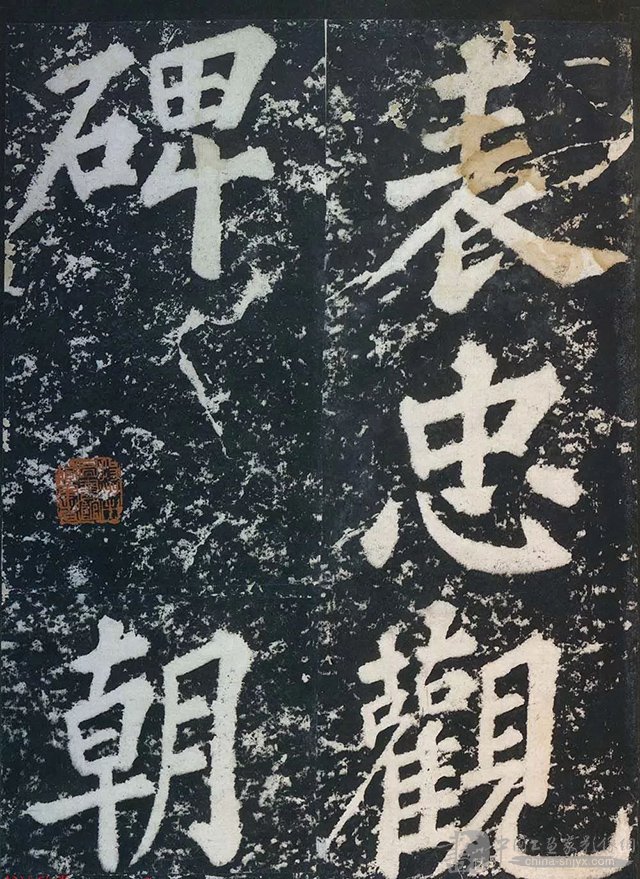 表忠觀
碑
朝
china-snjyx.com